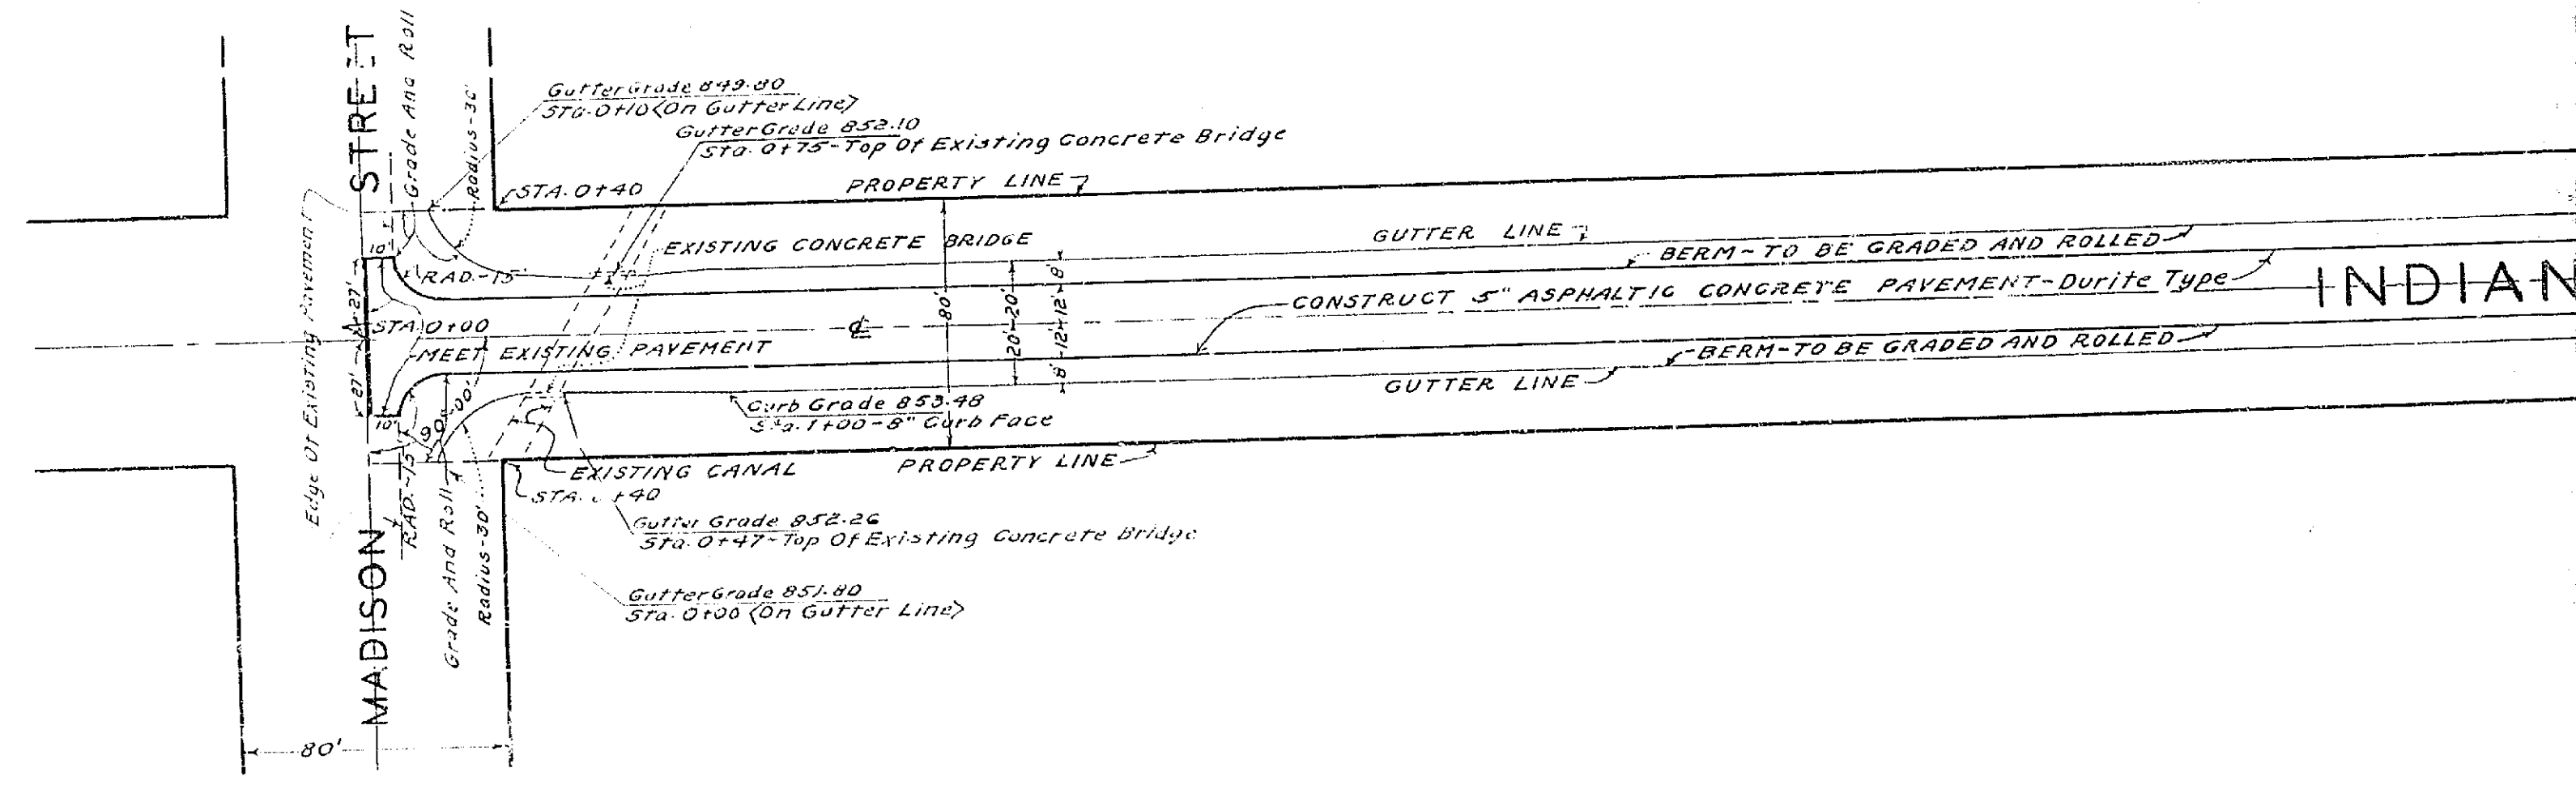 STREET
Grade And Roll
Radius-30'
Gutter Grade 849.80
Sta. 0+10 <On Gutter Line>
Gutter Grade 852.10
Sta. 0+75-Top Of Existing Concrete Bridge
STA. 0+40
PROPERTY LINE
Edge Of Existing Pavement
10'
RAD.-15'
EXISTING CONCRETE BRIDGE
GUTTER LINE
BERM-TO BE GRADED AND ROLLED
CONSTRUCT 5" ASPHALTIC CONCRETE PAVEMENT-Durite Type
INDIAN
27'
27'
STA. 0+00
MEET EXISTING PAVEMENT
80'
20'-20'
8'-12'-12'-8'
BERM-TO BE GRADED AND ROLLED
GUTTER LINE
Curb Grade 853.48
Sta. 1+00-8" Curb Face
10'
90°-00'
RAD.-15'
EXISTING CANAL
PROPERTY LINE
STA. +40
Gutter Grade 852.26
Sta. 0+47-Top Of Existing Concrete Bridge
Grade And Roll
Radius-30'
Gutter Grade 851.80
Sta. 0+00 <On Gutter Line>
MADISON
80'